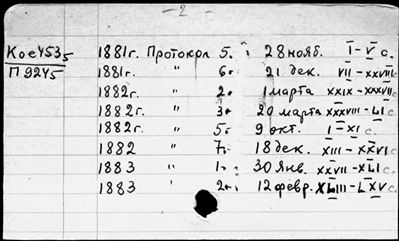 - 2 -
Кое 4535 1881г. Протокол 5. 28 нояб. I-V с.
П 9245 1881г. " 6. 21 дек. VII-XXVIII с.
1882г. " 2. 1 марта XXIX-XXXVII с.
1882г. " 3. 20 марта XXXVIII-LI с.
1882г. " 5. 9 окт. I-XI с.
1882 " 7. 18 дек. XIII-XXVI с.
1883 " 1. 30 янв. XXVII-XLI с.
1883 " 2. 12 февр. XLIII-LXV с.